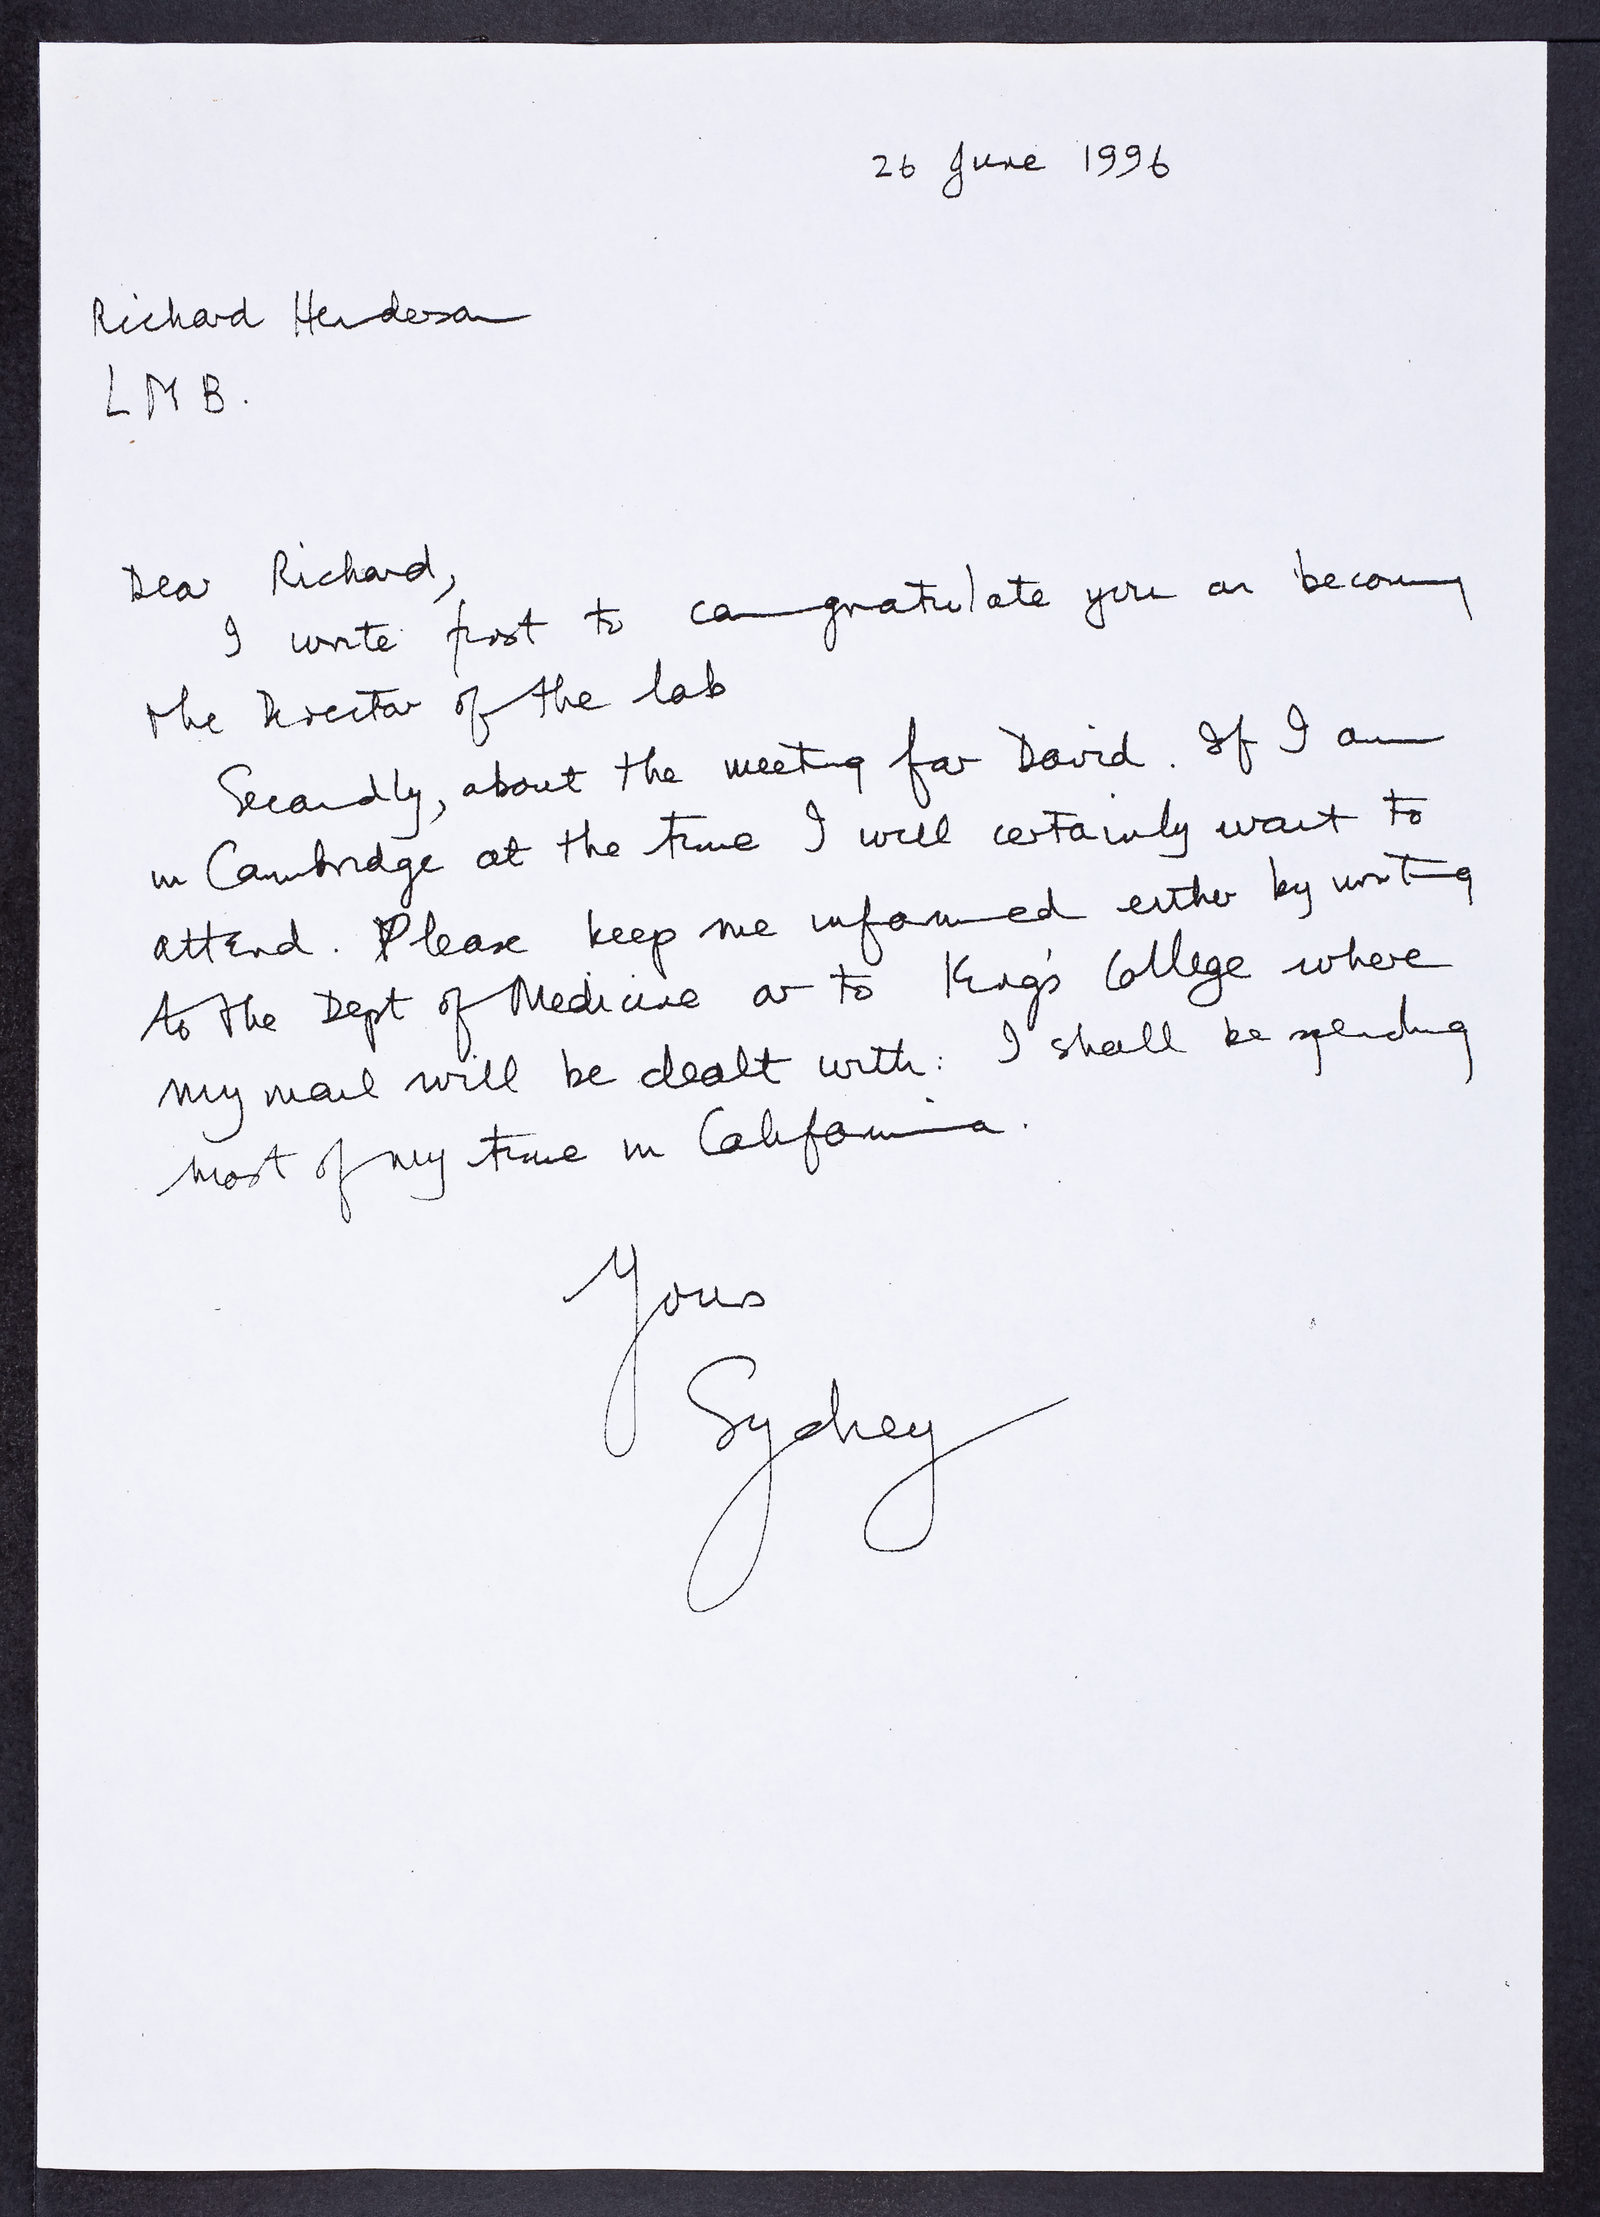 26 June 1996
Richard Henderson
LMB.
Dear Richard,
I write first to congratulate you on becoming
the Director of the lab
Secondly, about the meeting for David. If I am
in Cambridge at the time I will certainly want to
attend. Please keep me informed either by writing
to the Dept of Medicine or to King's College where
my mail will be dealt with: I shall be spending
most of my time in California.
Yours
Sydney